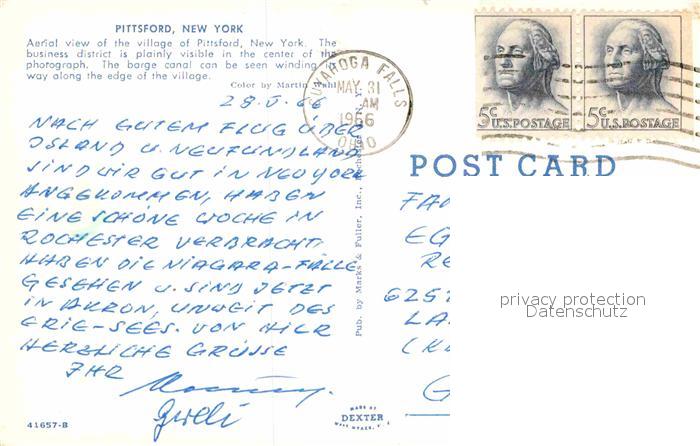 PITTSFORD, NEW YORK
Aerial view of the village of Pittsford, New York. The
business district is plainly visible in the center of the
photograph. The barge canal can be seen winding
way along the edge of the village.
Color by Martin
28.V.66
NACH GUTEM FLUG ÜBER
ISLAND U. NEUFUNDLAND
SIND WIR GUT IN NEW YORK
ANGEKOMMEN, HABEN
EINE SCHÖNE WOCHE IN
ROCHESTER VERBRACHT.
HABEN DIE NIAGARA-FÄLLE
GESEHEN U. SIND JETZT
IN AKRON, UNWEIT DES
ERIE-SEES. VON HIER
HERZLICHE GRÜSSE
IHR
41657-B
Pub. by Marks & Fuller, Inc., Rochester, N. Y.
CUYAHOGA FALLS
MAY 31
AM
1966
OHIO
5c U.S. POSTAGE
5c U.S. POSTAGE
POST CARD
FA
EG
RE
6251
LA
(K
G
MADE BY
DEXTER
privacy protection
Datenschutz